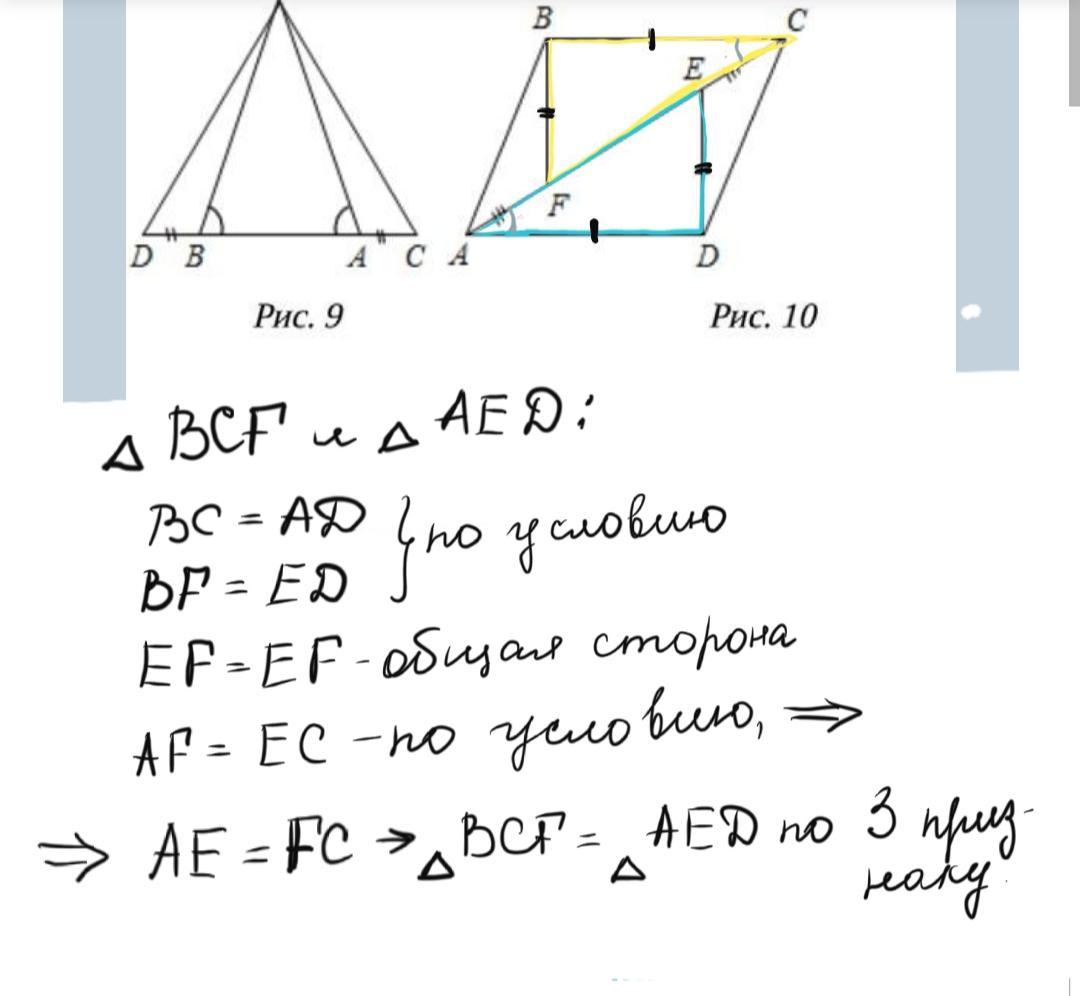 B C
E
F
D B A C A D
Рис. 9 Рис. 10
△ BCF и △ AED:
BC = AD } по условию
BF = ED
EF = EF - общая сторона
AF = EC - по условию, ⇒
⇒ AE = FC → △ BCF = △ AED по 3 приз-
наку